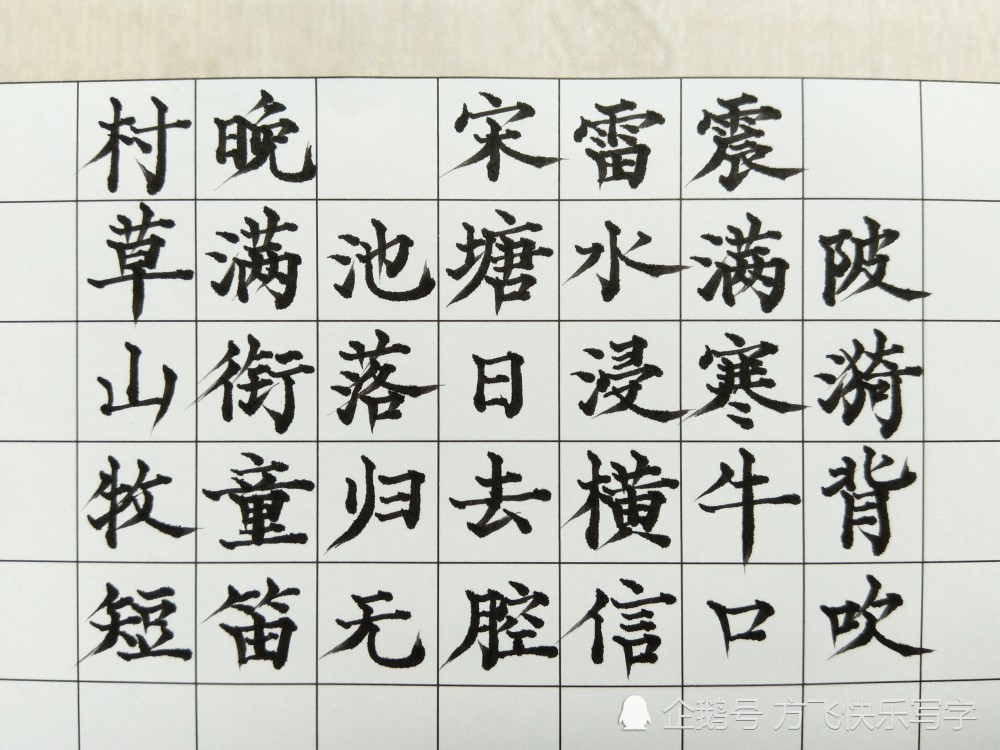 村晚 宋雷震
草满池塘水满陂
山衔落日浸寒漪
牧童归去横牛背
短笛无腔信口吹
企鹅号 方飞快乐写字